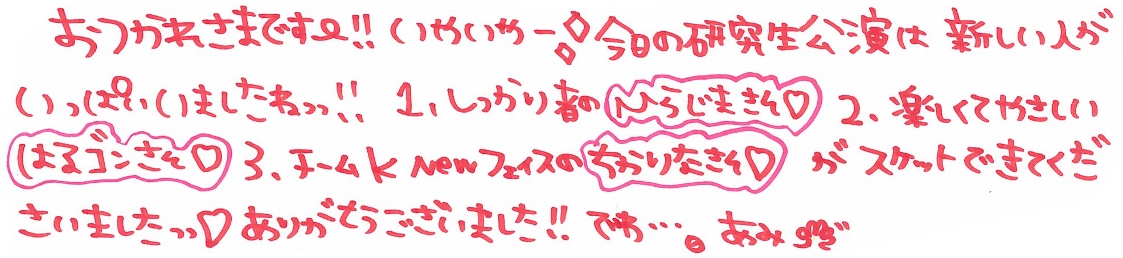 おつかれさまですよ!! いやいやー 今日の研究生公演は 新しい人が
いっぱいいましたねっっ!! 1、しっかり者の ひらじまさん♡ 2、楽しくてやさしい
はるゴンさん♡ 3、チームK Newフェイスの ちかりなさん♡ が スケットできてくだ
さいましたっっ♡ ありがとうございました!! でわ…。 あみ